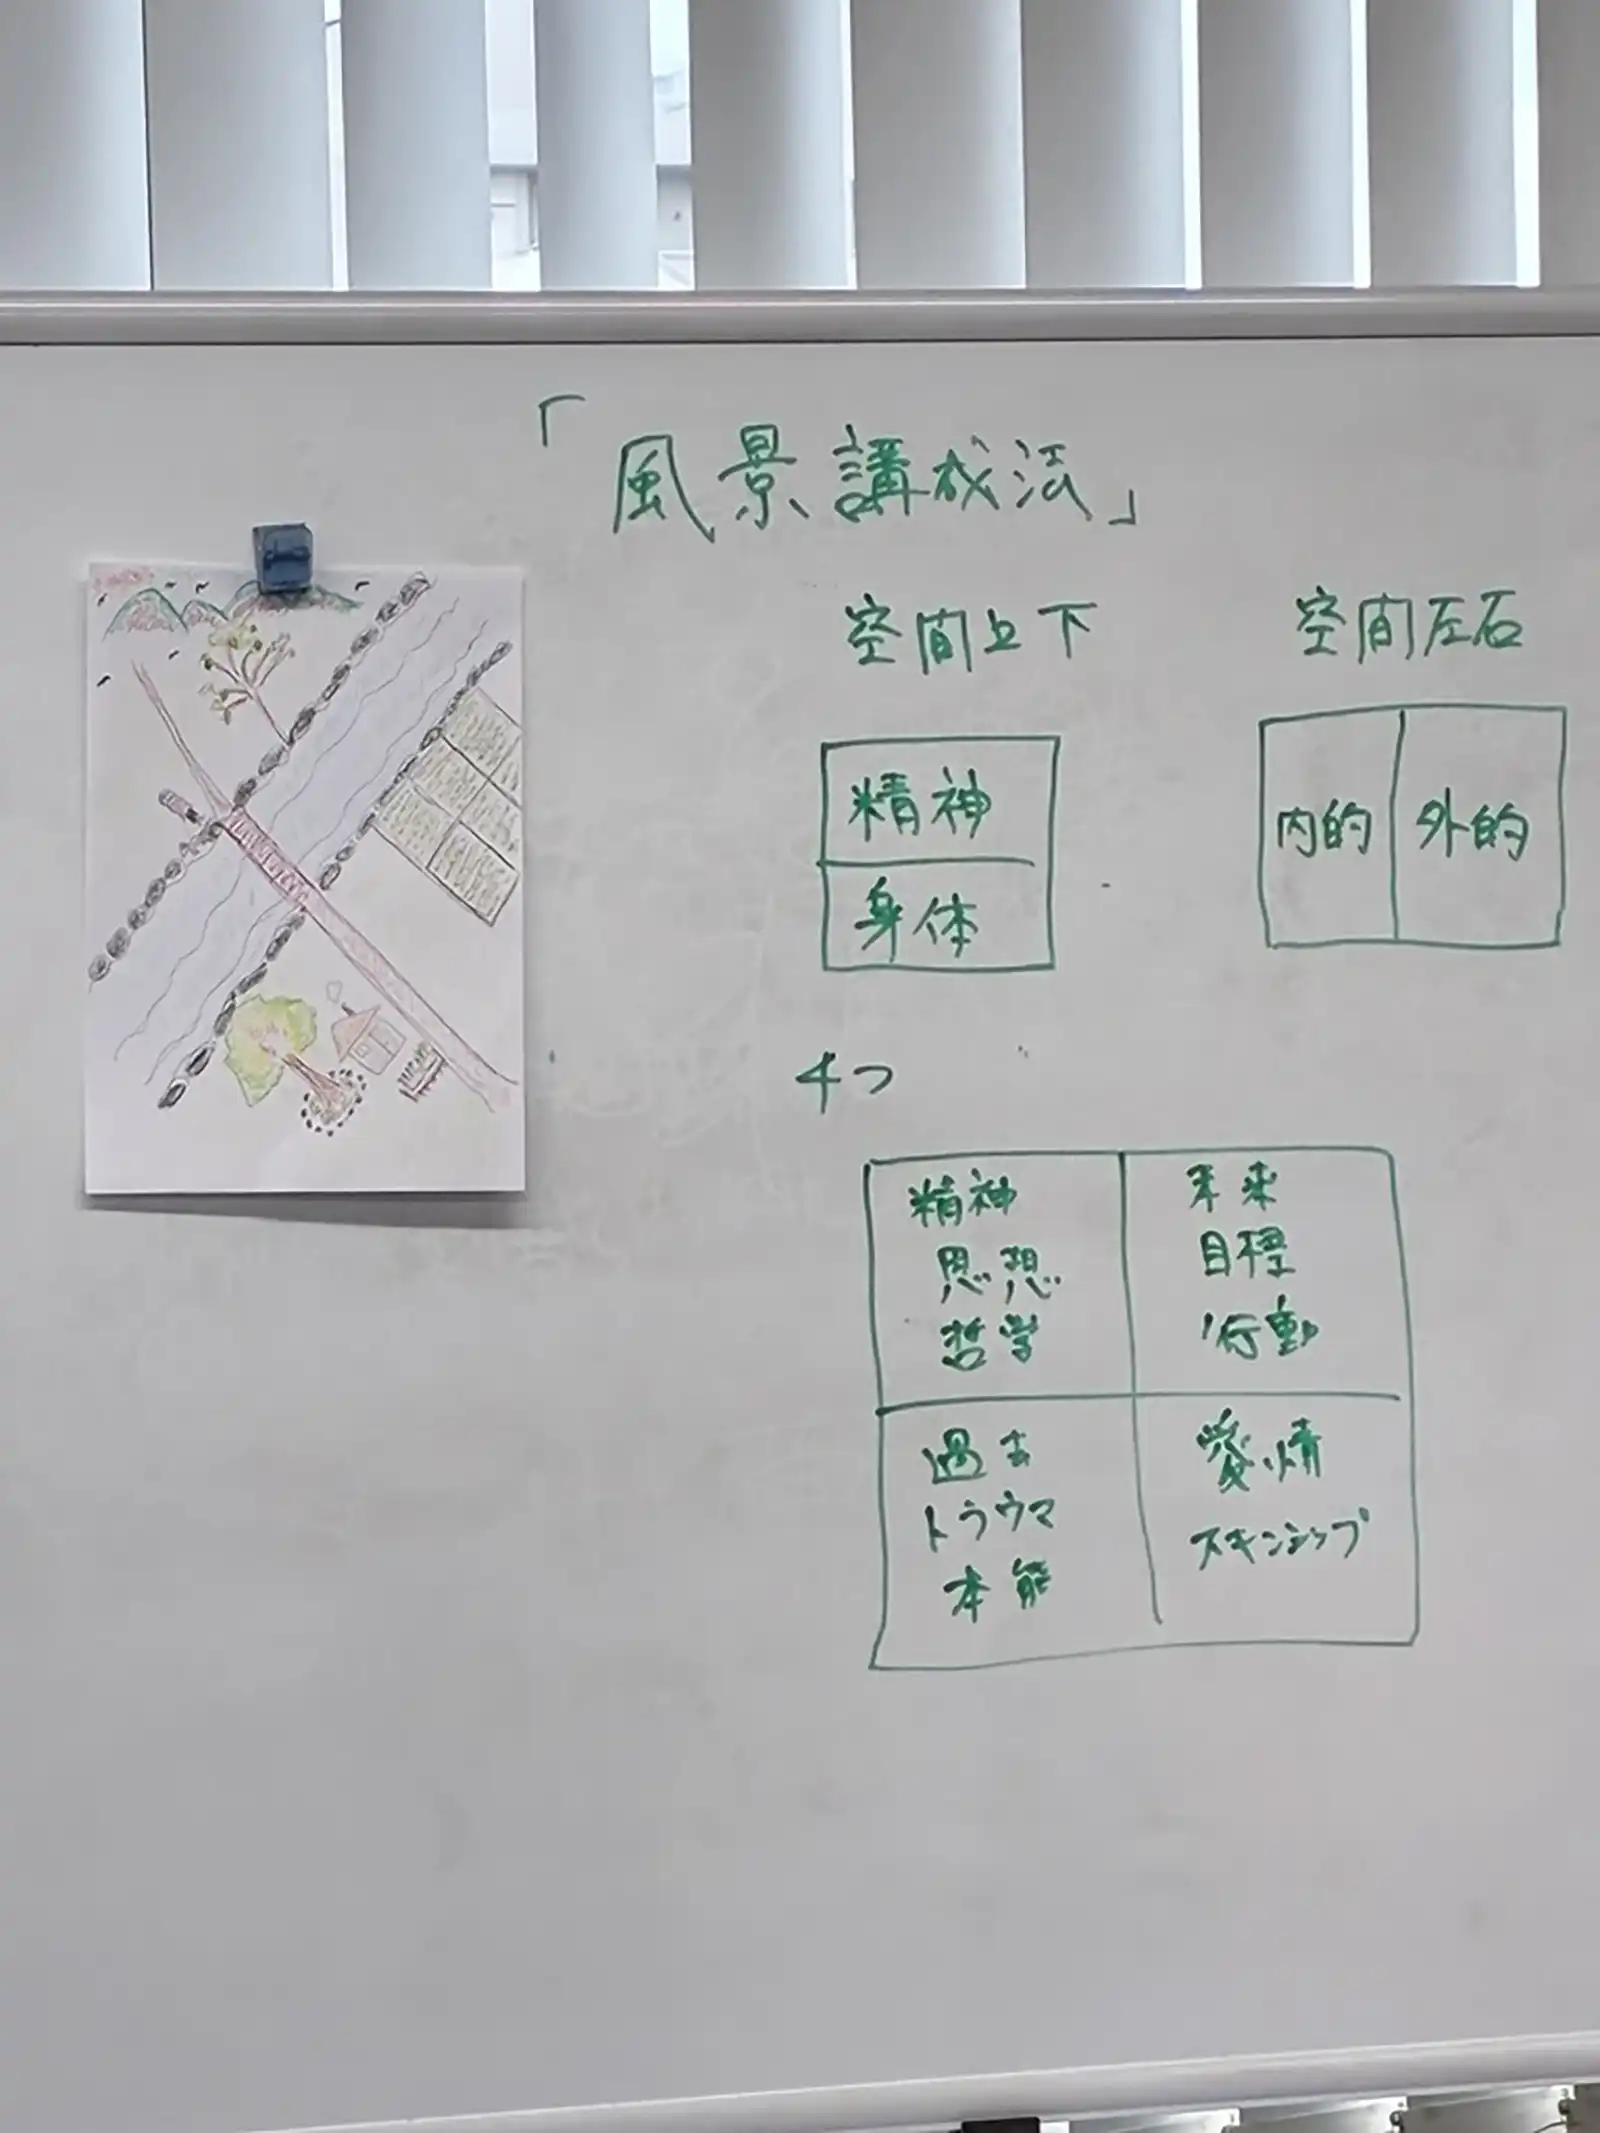 「風景講成法」
空間上下
精神
身体
空間左右
内的
外的
4つ
精神
思想
哲学
未来
目標
行動
過去
トラウマ
本能
愛情
スキンシップ